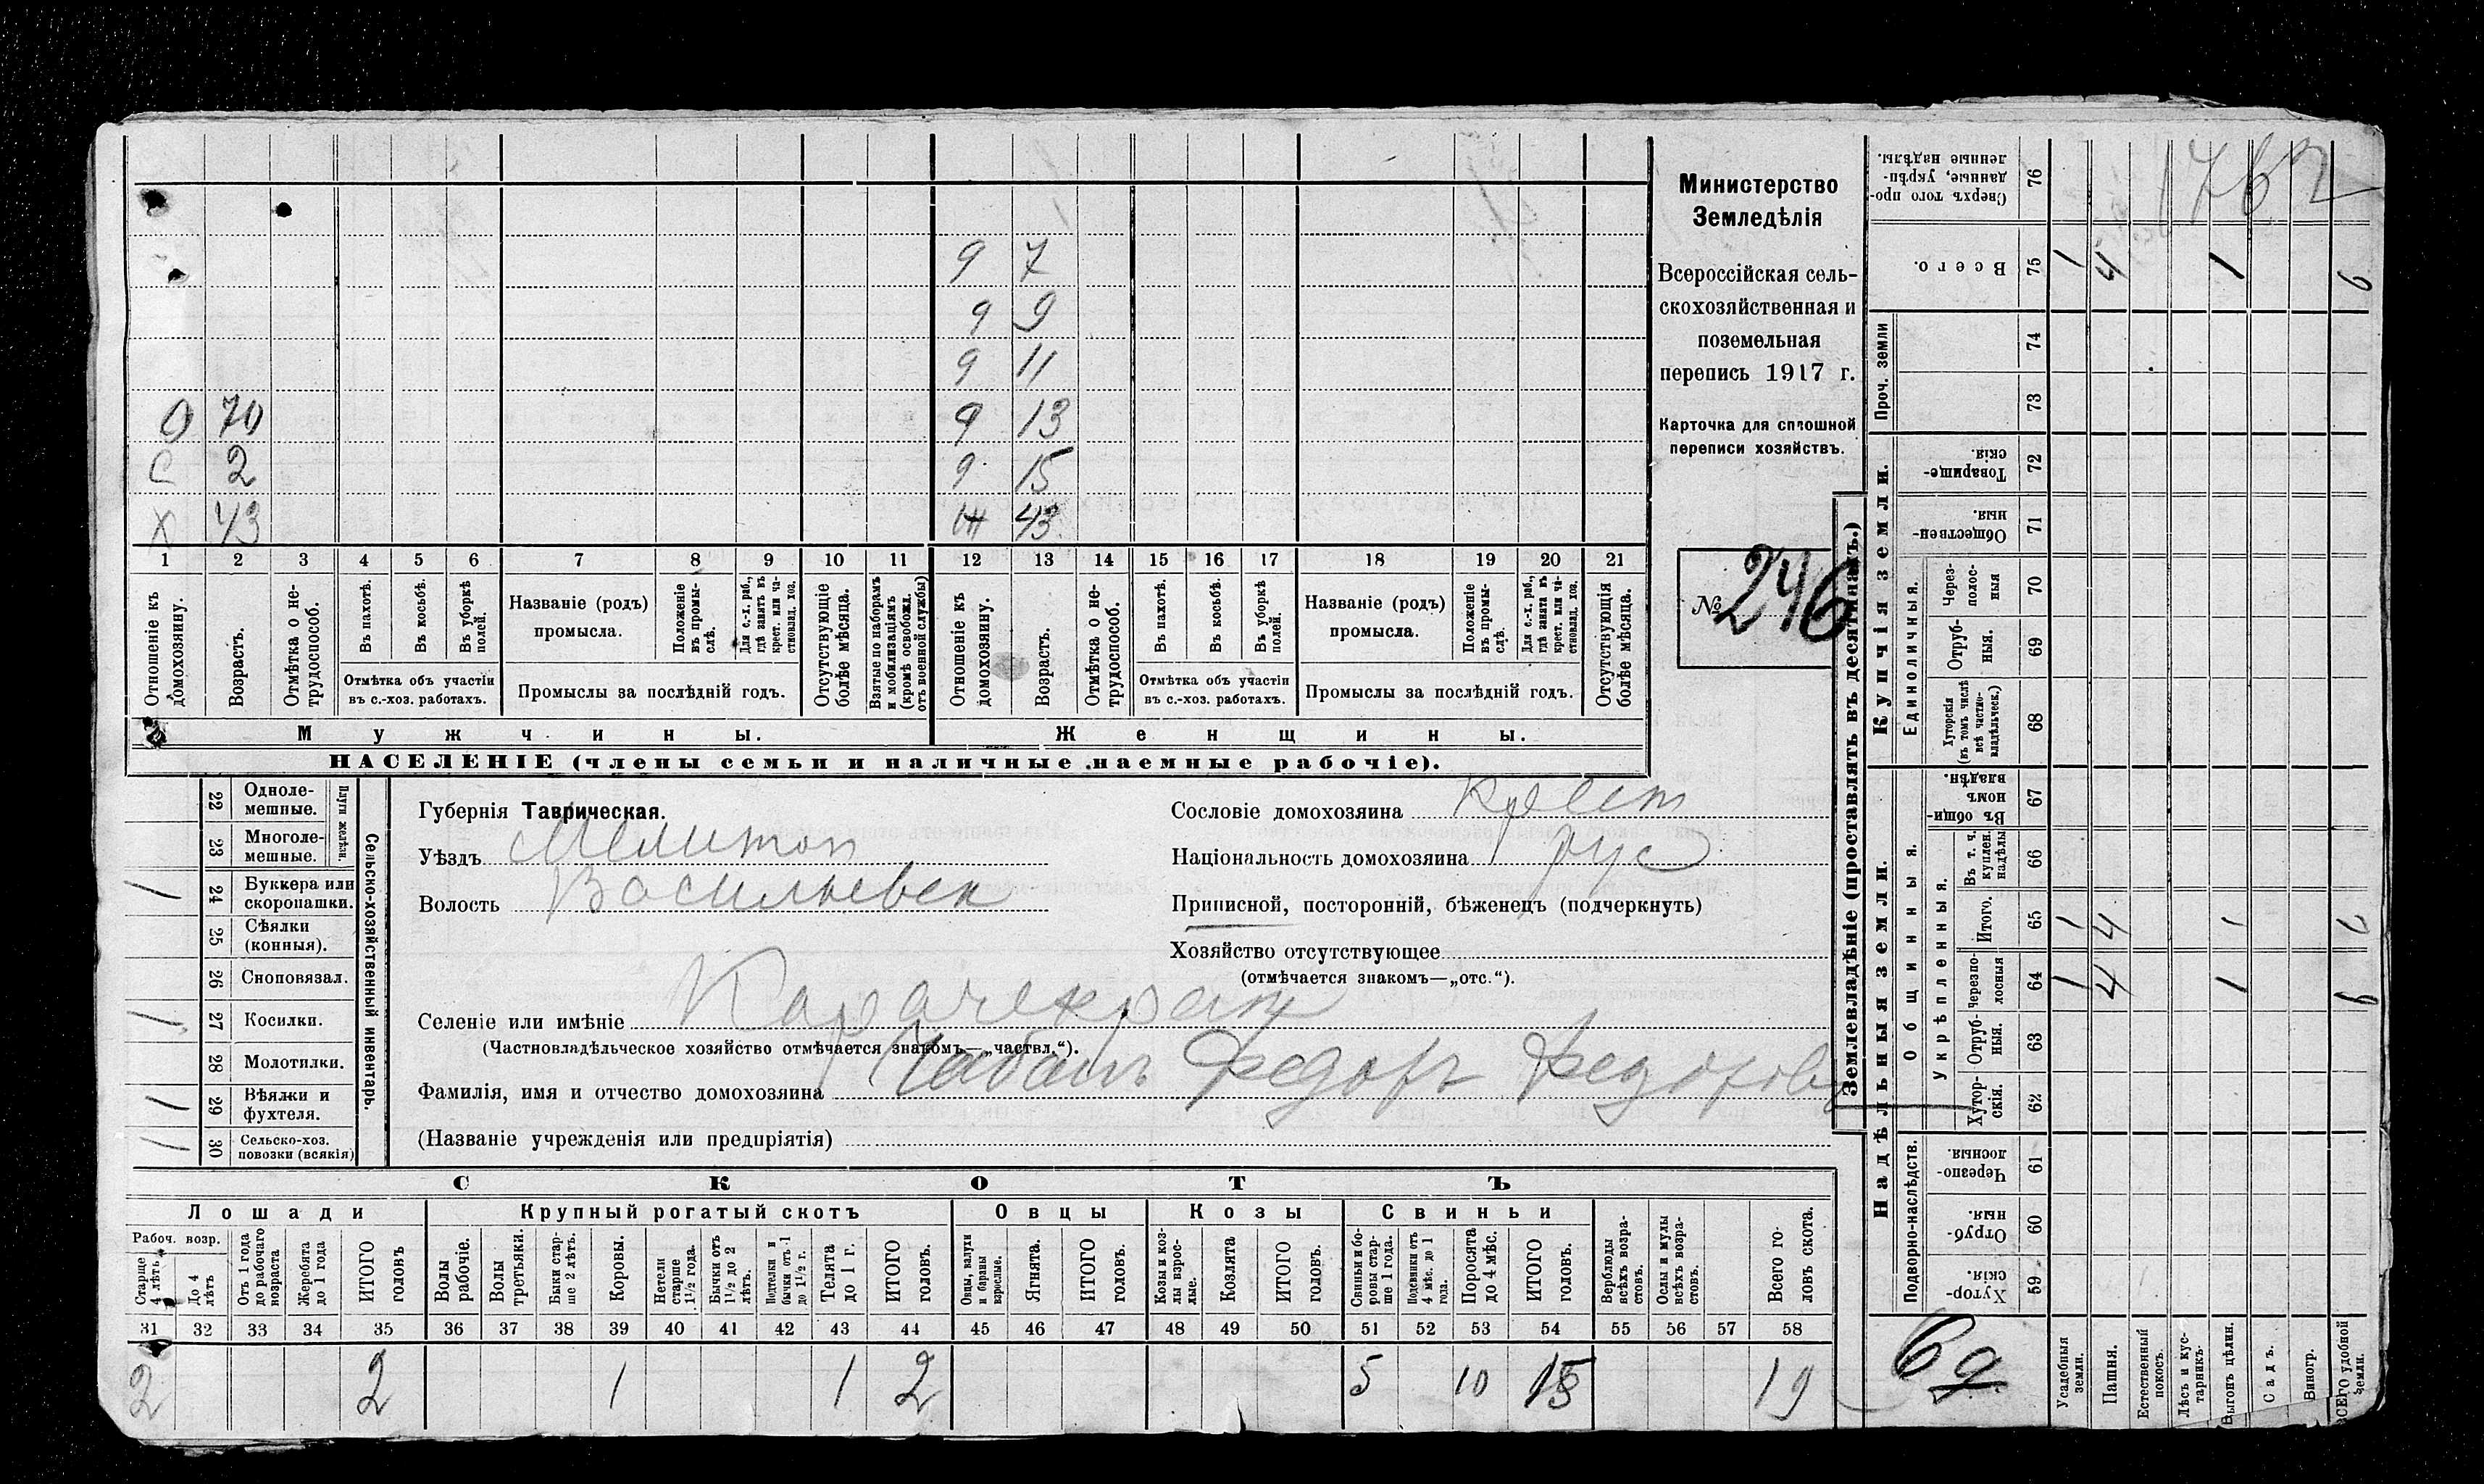 9 7
9 9
9 11
О 70 9 13
С 2 9 15
Х 43 Ж 43
1 2 3 4 5 6 7 8 9 10 11 12 13 14 15 16 17 18 19 20 21
Отношеніе къ домохозяину.
Возрастъ.
Отмѣтка о не-
трудоспособ.
Въ пахотѣ.
Въ косьбѣ.
Въ уборкѣ полей.
Отмѣтка объ участіи
въ с.-хоз. работахъ.
Названіе (родъ)
промысла.
Положеніе въ промы-
слѣ.
Для с.-х. раб., гдѣ занятъ въ крест. или ча-
стновлад. хоз.
Промыслы за послѣдній годъ.
Отсутствующіе болѣе мѣсяца.
Взятые по наборамъ и мобилизаціямъ (кромѣ освобожд. отъ военной службы)
Отношеніе къ домохозяину.
Возрастъ.
Отмѣтка о не-
трудоспособ.
Въ пахотѣ.
Въ косьбѣ.
Въ уборкѣ полей.
Отмѣтка объ участіи
въ с.-хоз. работахъ.
Названіе (родъ)
промысла.
Положеніе въ промы-
слѣ.
Для с.-х. раб., гдѣ занята въ крест. или ча-
стновлад. хоз.
Промыслы за послѣдній годъ.
Отсутствующія болѣе мѣсяца.
Мужчины. Женщины.
НАСЕЛЕНІЕ (члены семьи и наличные наемные рабочіе).
Министерство
Земледѣлія
Всероссійская сель-
скохозяйственная и
поземельная
перепись 1917 г.
Карточка для сплошной
переписи хозяйствъ.
№ 246
22 Одноле-
мешные.
23 Многоле-
мешные.
Плуги желѣзн.
1 24 Буккера или
скоропашки.
25 Сѣялки
(конныя).
26 Сноповязал.
1 27 Косилки.
28 Молотилки.
1 29 Вѣялки и
фухтеля.
1 30 Сельско-хоз.
повозки (всякія)
Сельско-хозяйственный инвентарь.
Губернія Таврическая.
Уѣздъ Мелитоп
Волость Васильевск
Сословіе домохозяина Крест
Національность домохозяина рус
Приписной, посторонній, бѣженецъ (подчеркнуть)
Хозяйство отсутствующее
(отмѣчается знакомъ—„отс.“).
Селеніе или имѣніе Карачекрак
(Частновладѣльческое хозяйство отмѣчается знакомъ—„частвл.“).
Фамилія, имя и отчество домохозяина Чабанъ Федоръ Федоров
(Названіе учрежденія или предпріятія)
СКОТЪ
Лошади Крупный рогатый скотъ Овцы Козы Свиньи
Рабоч. возр.
Старше 4 лѣтъ
До 4 лѣтъ
Отъ 1 года до рабочаго возраста
Жеребята до 1 года
ИТОГО головъ
Волы рабочіе.
Волы третьяки.
Быки стар-
ше 2 лѣтъ.
Коровы.
Нетели старше 1½ года.
Бычки отъ 1½ до 2 лѣтъ.
Подтелки и бычки отъ 1 до 1½ г.
Телята до 1 г.
ИТОГО головъ.
Овцы, валухи и бараны взрослые.
Ягнята.
ИТОГО головъ.
Козы и коз-
лы взрос-
лые.
Козлята
ИТОГО головъ.
Свиньи и бо-
ровы стар-
ше 1 года.
Подсвинки отъ 4 мѣс. до 1 года.
Поросята до 4 мѣс.
ИТОГО головъ.
Верблюды всѣхъ возра-
стовъ.
Ослы и мулы всѣхъ возра-
стовъ.
Всего го-
ловъ скота.
31 32 33 34 35 36 37 38 39 40 41 42 43 44 45 46 47 48 49 50 51 52 53 54 55 56 57 58
2 2 1 1 2 5 10 15 19
Землевладѣніе (проставлять въ десятинахъ.)
Купчія земли.
Надѣльныя земли.
Сверхъ того про-
данные, укрѣп-
ленные надѣлы.
76
Всего. 75 1 4 1 6
Проч. земли
74
73
Товарище-
скія. 72
Обществен-
ныя. 71
Единоличныя.
Через-
полос-
ныя 70
Отруб-
ныя. 69
Хуторскія (въ томъ числѣ всѣ частно-
владѣльческ.) 68
Общинныя.
Въ общин-
номъ владѣн. 67
Укрѣпленныя.
Въ т. ч. куплен. надѣлы 66
Итого. 65 1 4 1 6
Черезпо-
лосныя 64 1 4 1 6
Отруб-
ныя. 63
Хутор-
скія. 62
Подворно-наслѣдств.
Черезпо-
лосныя. 61
Отруб-
ныя. 60
Хутор-
скія. 59
Усадебныя земли.
Пашня.
Естественный покосъ.
Лѣсъ и кус-
тарникъ.
Выгонъ цѣлин.
Садъ.
Виногр.
ВСЕГО удобной земли.
6 д.